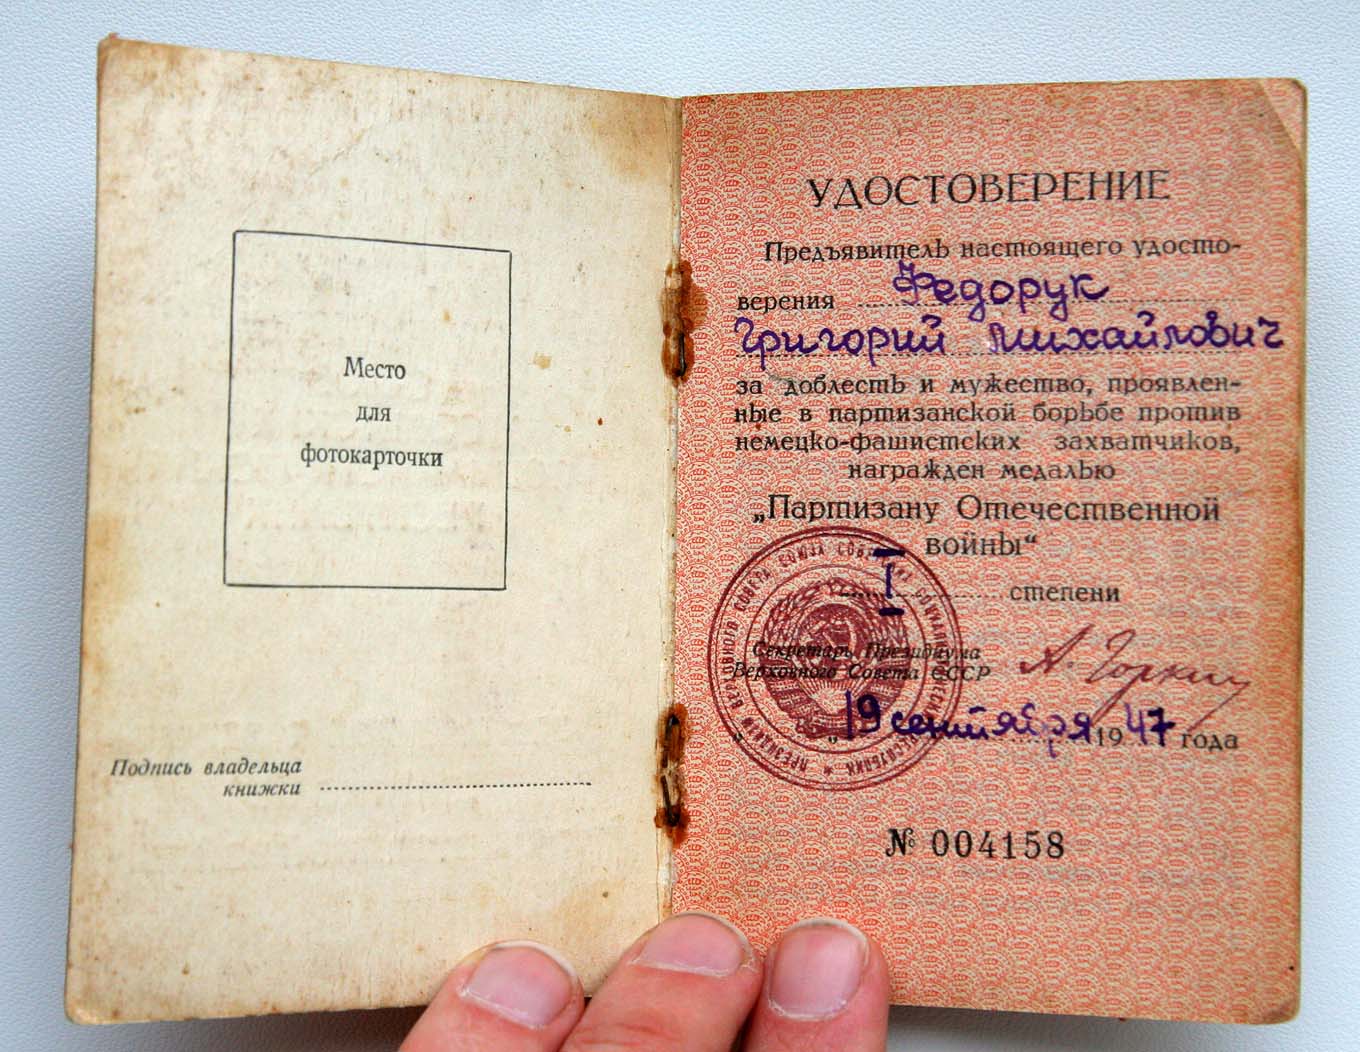 Место
для
фотокарточки
Подпись владельца
книжки
УДОСТОВЕРЕНИЕ
Предъявитель настоящего удосто-
верения Федорук
Григорий Михайлович
за доблесть и мужество, проявлен-
ные в партизанской борьбе против
немецко-фашистских захватчиков,
награжден медалью
„Партизану Отечественной
войны“
I степени
Секретарь Президиума
Верховного Совета СССР А. Горкин
„19 сентября 1947 года
№ 004158
ПРЕЗИДИУМ ВЕРХОВНОГО СОВЕТА СОЮЗА СОВЕТСКИХ СОЦИАЛИСТИЧЕСКИХ РЕСПУБЛИК